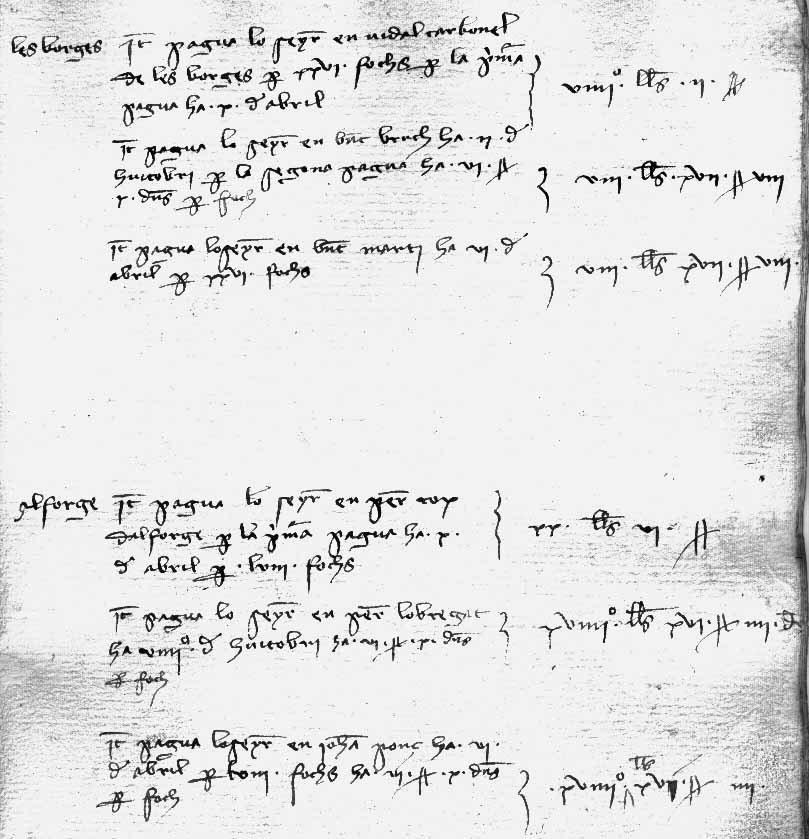 les borges It pagua lo seyr en vidal carbonel
de les borges p xxvi · fochs p la pma
pagua ha · x · d abril
viiii° · lls · ii · ss
It pagua lo seyr en bnt ha · ii · d
huitobri p la segona pagua ha · vi · ss
x · dns p foch
viii · lls · xvii · ss viii
It pagua lo seyr en bnt marti ha vi · d
abril p xxvi · fochs
viii · lls xvii · ss viii ·
alforge It pagua lo seyr en per cox
dalforge p la pma pagua ha · x ·
d abril p · lviii · fochs
xx · lls vi · ss
It pagua lo seyr en per lobregat
ha viiii° · d huitobri ha · vi · ss · x · dns
p foch
xviiii° · lls xvi · ss iiii · d
It pagua lo seyr en joha ponç ha · vi ·
d abril p lviii · fochs ha · vi · ss · x · dns
p foch
· xviiii° lls xvi · ss iiii ·